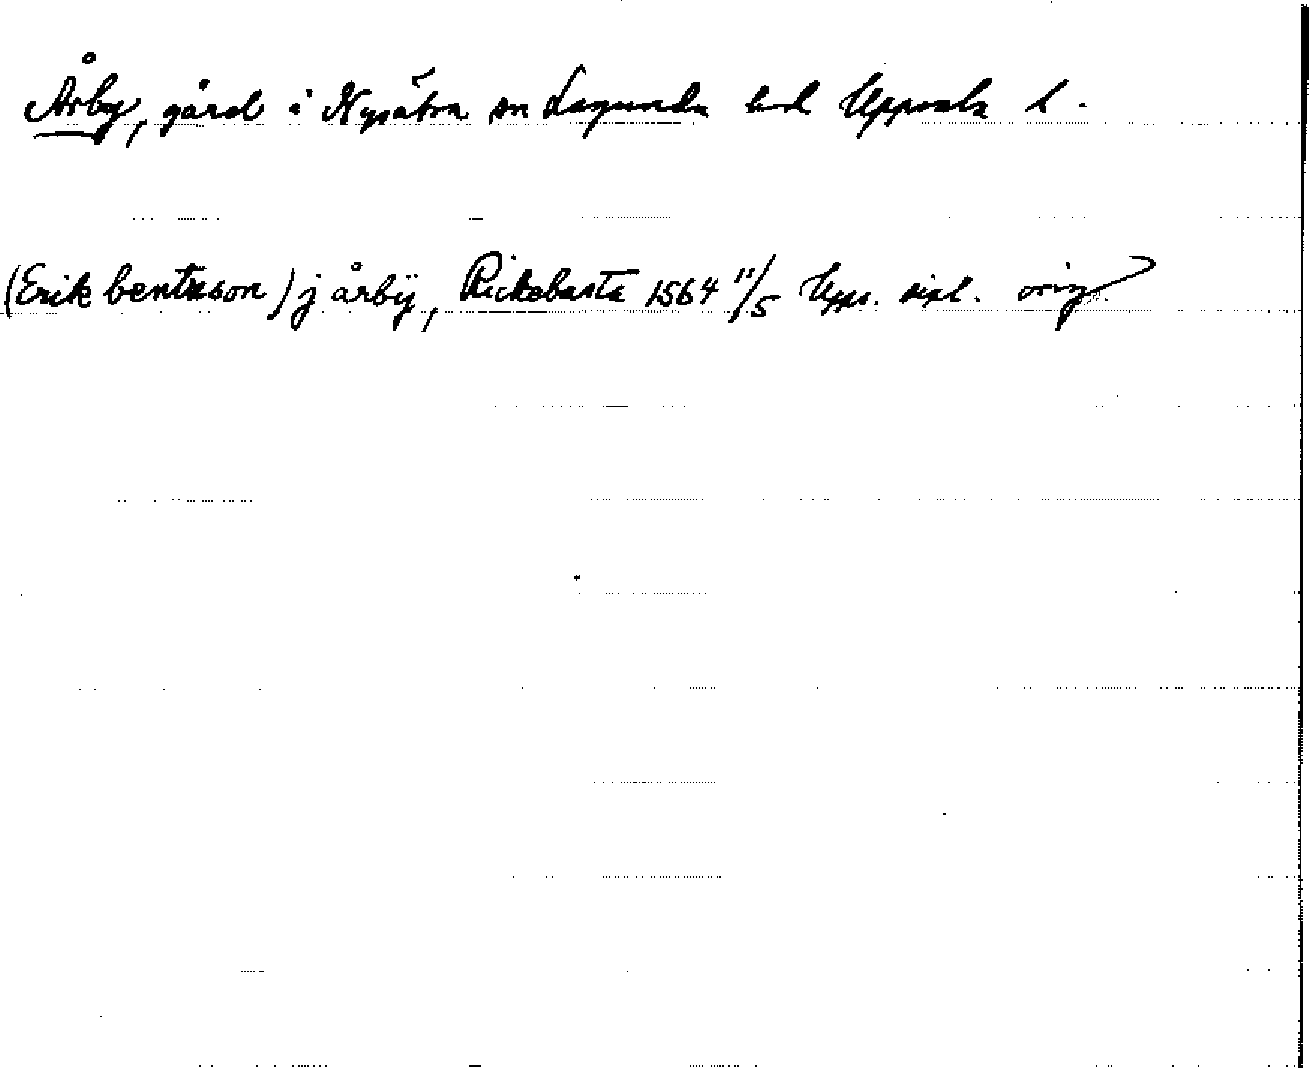 Årby, gård i Nysätra sn Lagunda hd Uppsala l.
(Erik bentsson) j årbÿ, Rickebasta 1564 11/5 Upps. dipl. orig.